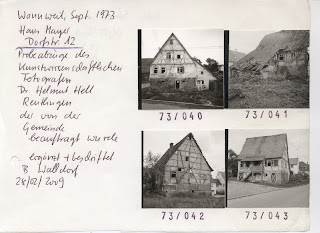 Wannweil, Sept. 1973
Haus Mayer
Dorfstr. 12
Probeabzüge des
Kunstwissenschaftlichen
Fotografen
Dr. Helmut Hell
Reutlingen
der von der
Gemeinde
beauftragt wurde
ergänzt + beschriftet
B Walldorf
28/02/2009
73/040
73/041
73/042
73/043